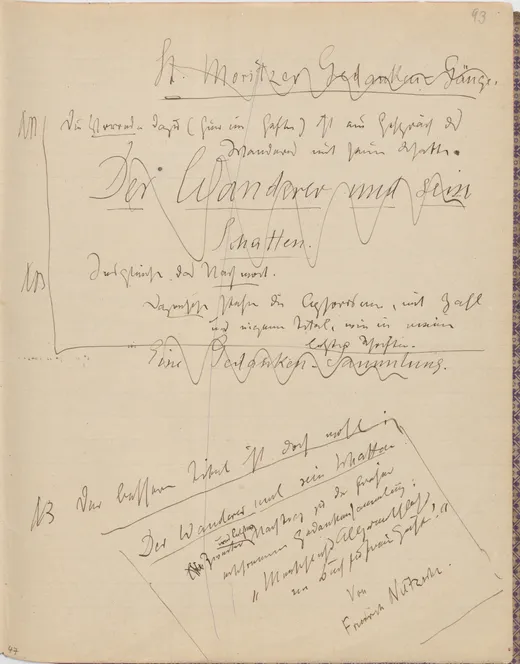 93
St. Moritzer Gedanken-Gänge.
NB Die Vorrede dazu (hier im Hefte) ist ein Gespräch des
Wanderers mit seinem Schatten.
Der Wanderer und sein
Schatten.
NB Desgleichen das Nachwort.
Dazwischen stehen die Aphorismen, mit Zahl
und eigenem Titel, wie in meinen
letzten Schriften.
Eine Gedanken-Sammlung.
NB Der bessere Titel ist doch wohl:
Der Wanderer und sein Schatten.
und letzter
Zweiter Nachtrag zu der früher
erschienenen Gedankensammlung:
„Menschliches Allzumenschliches
ein Buch für freie Geister."
Von
Friedrich Nietzsche.
44